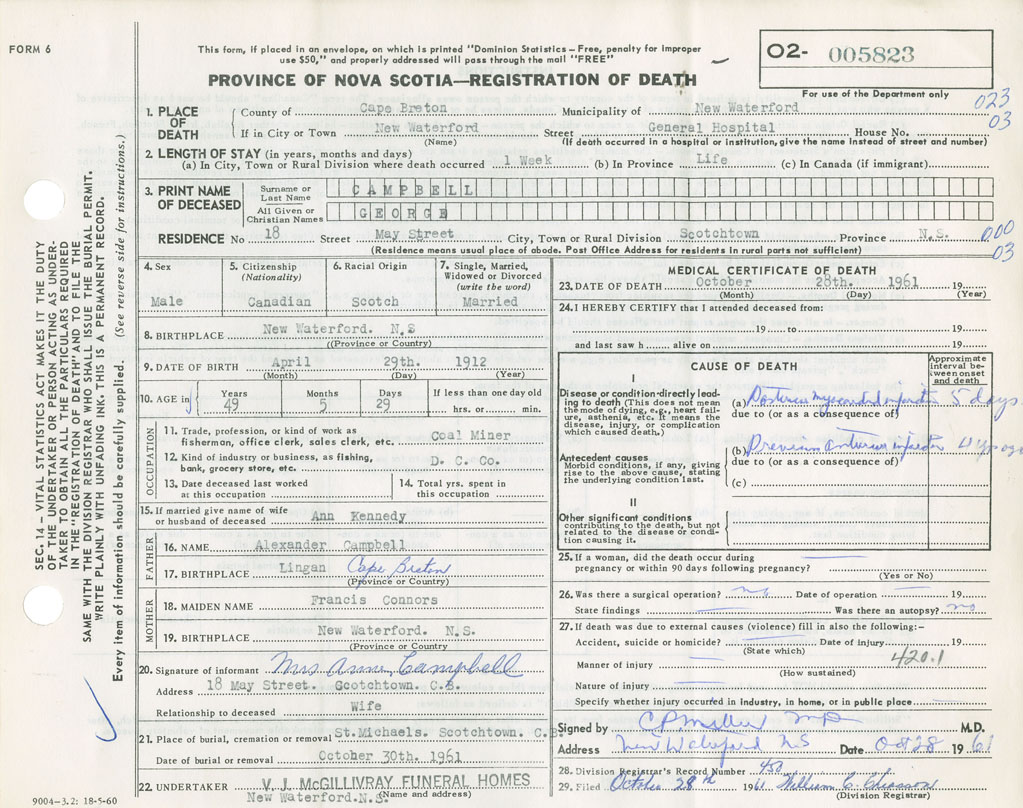 FORM 6
This form, if placed in an envelope, on which is printed "Dominion Statistics – Free, penalty for improper
use $50," and properly addressed will pass through the mail "FREE"
PROVINCE OF NOVA SCOTIA—REGISTRATION OF DEATH
O2- 005823
For use of the Department only
023
03
1. PLACE OF DEATH
County of Cape Breton Municipality of New Waterford
If in City or Town New Waterford Street General Hospital House No.
(Name) (If death occurred in a hospital or institution, give the name instead of street and number)
2. LENGTH OF STAY (in years, months and days)
(a) In City, Town or Rural Division where death occurred 1 Week (b) In Province Life (c) In Canada (if immigrant)
3. PRINT NAME OF DECEASED
Surname or Last Name CAMPBELL
All Given or Christian Names GEORGE
RESIDENCE No 18 Street May Street City, Town or Rural Division Scotchtown Province N.S.
(Residence means usual place of abode. Post Office Address for residents in rural parts not sufficient)
000
03
4. Sex
Male
5. Citizenship (Nationality)
Canadian
6. Racial Origin
Scotch
7. Single, Married, Widowed or Divorced (write the word)
Married
8. BIRTHPLACE New Waterford. N.S
((Province or Country)
9. DATE OF BIRTH April 29th. 1912
(Month) (Day) (Year)
10. AGE in
Years 49
Months 5
Days 29
If less than one day old
hrs. or min.
OCCUPATION
11. Trade, profession, or kind of work as
fisherman, office clerk, sales clerk, etc. Coal Miner
12. Kind of industry or business, as fishing,
bank, grocery store, etc. D. C. Co.
13. Date deceased last worked
at this occupation
14. Total yrs. spent in
this occupation
15. If married give name of wife
or husband of deceased Ann Kennedy
FATHER
16. NAME Alexander Campbell
17. BIRTHPLACE Lingan Cape Breton
(Province or Country)
MOTHER
18. MAIDEN NAME Francis Connors
19. BIRTHPLACE New Waterford. N.S.
(Province or Country)
20. Signature of informant Mrs Annie Campbell
Address 18 May Street. Scotchtown. C.B.
Relationship to deceased Wife
21. Place of burial, cremation or removal St.Michaels. Scotchtown. C.B
Date of burial or removal October 30th. 1961
22. UNDERTAKER V. J. McGILLIVRAY FUNERAL HOMES
New Waterford.N.S. (Name and address)
9004–3.2: 18-5-60
MEDICAL CERTIFICATE OF DEATH
23. DATE OF DEATH October 28th. 1961 19
(Month) (Day) (Year)
24. I HEREBY CERTIFY that I attended deceased from:
19 to 19
and last saw h alive on 19
CAUSE OF DEATH
Approximate interval between onset and death
I
Disease or condition directly leading to death (This does not mean the mode of dying, e.g., heart failure, asthenia, etc. It means the disease, injury, or complication which caused death.)
(a) myocardial infarction 5 days
due to (or as a consequence of)
Antecedent causes
Morbid conditions, if any, giving rise to the above cause, stating the underlying condition last.
(b) Previous infarction
due to (or as a consequence of)
(c)
II
Other significant conditions
contributing to the death, but not related to the disease or condition causing it.
25. If a woman, did the death occur during
pregnancy or within 90 days following pregnancy?
(Yes or No)
26. Was there a surgical operation? no Date of operation 19
State findings Was there an autopsy? no
27. If death was due to external causes (violence) fill in also the following:–
Accident, suicide or homicide? Date of injury 19
(State which)
420.1
Manner of injury
(How sustained)
Nature of injury
Specify whether injury occurred in industry, in home, or in public place
Signed by C.P. Miller MD M.D.
Address New Waterford NS Date Oct 28 1961
28. Division Registrar's Record Number 450
29. Filed October 28th 1961 William
(Division Registrar)
SEC. 14 – VITAL STATISTICS ACT MAKES IT THE DUTY
OF THE UNDERTAKER OR PERSON ACTING AS UNDER-
TAKER TO OBTAIN ALL THE PARTICULARS REQUIRED
IN THE "REGISTRATION OF DEATH" AND TO FILE THE
SAME WITH THE DIVISION REGISTRAR WHO SHALL ISSUE THE BURIAL PERMIT.
WRITE PLAINLY WITH UNFADING INK. THIS IS A PERMANENT RECORD.
Every item of information should be carefully supplied. (See reverse side for instructions.)